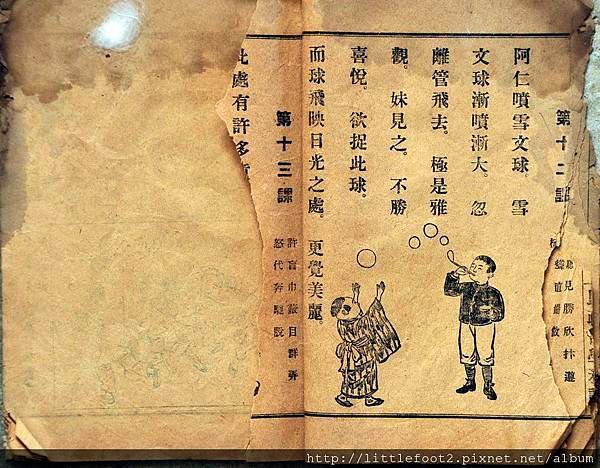 第十二課
見勝欣
阿仁噴雪文球。雪
文球漸噴漸大。忽
離管飛去。極是雅
觀。妹見之。不勝
喜悅。欲捉此球。
而球飛映日光之處。更覺美麗。
第十三課
許盲巾蔽目群弄
怒代奔
此處有許多
http://littlefoot2.pixnet.net/album